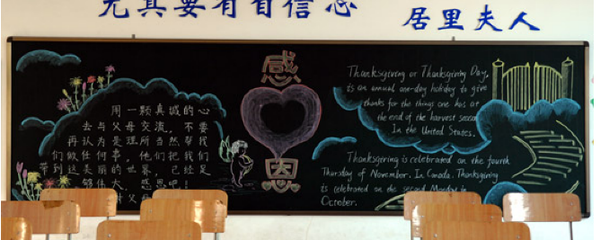 尤其要有自信心
居里夫人
感
恩
用一颗真诚的心
去与父母交流，不要
再认为是理所当然帮我
们做任何事，他们把我们
带到这美丽的世界，已经
足够伟大，感恩吧！
父
Thanksgiving or Thanksgiving Day,
is an annual one-day holiday to give
thanks for the things one has at
the end of the harvest season
In the United States,
Thanksgiving is celebrated on the fourth
Thursday of November. In Canada, Thanksgiving
is celebrated on the second Monday in
October.